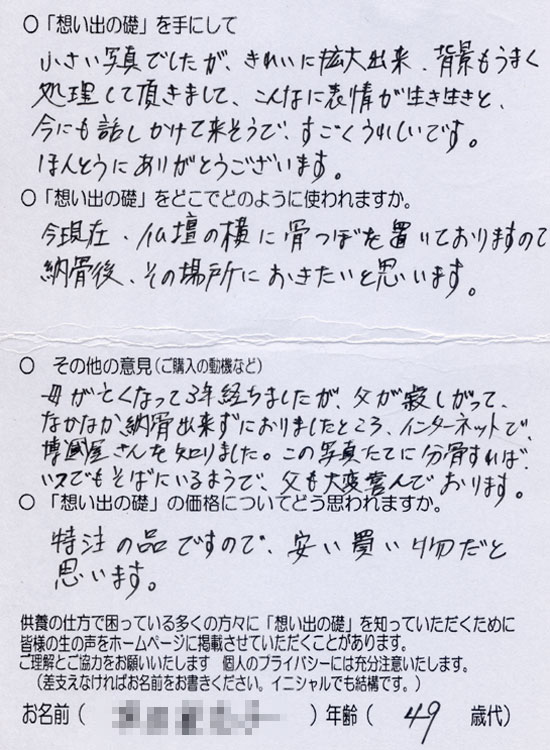 〇「想い出の礎」を手にして
小さい写真でしたが、きれいに拡大出来、背景もうまく
処理して頂きまして、こんなに表情が生き生きと、
今にも話しかけて来そうで、すごくうれしいです。
ほんとうにありがとうございます。
〇「想い出の礎」をどこでどのように使われますか。
今現在、仏壇の横に骨つぼを置いておりますので
納骨後、その場所におきたいと思います。
〇 その他の意見(ご購入の動機など)
母がとくなって3年経ちましたが、父が寂しがって、
なかなか納骨出来ずにおりましたところ、インターネットで、
博國屋さんを知りました。この写真たてに分骨すれば、
いつでもそばにいるようで、父も大変喜んでおります。
〇「想い出の礎」の価格についてどう思われますか。
特注の品ですので、安い買い物だと
思います。
供養の仕方で困っている多くの方々に「想い出の礎」を知っていただくために
皆様の生の声をホームページに掲載させていただくことがあります。
ご理解とご協力をお願いいたします 個人のプライバシーには充分注意いたします。
(差支えなければお名前をお書きください。イニシャルでも結構です。)
お名前( )年齢( 49 歳代)